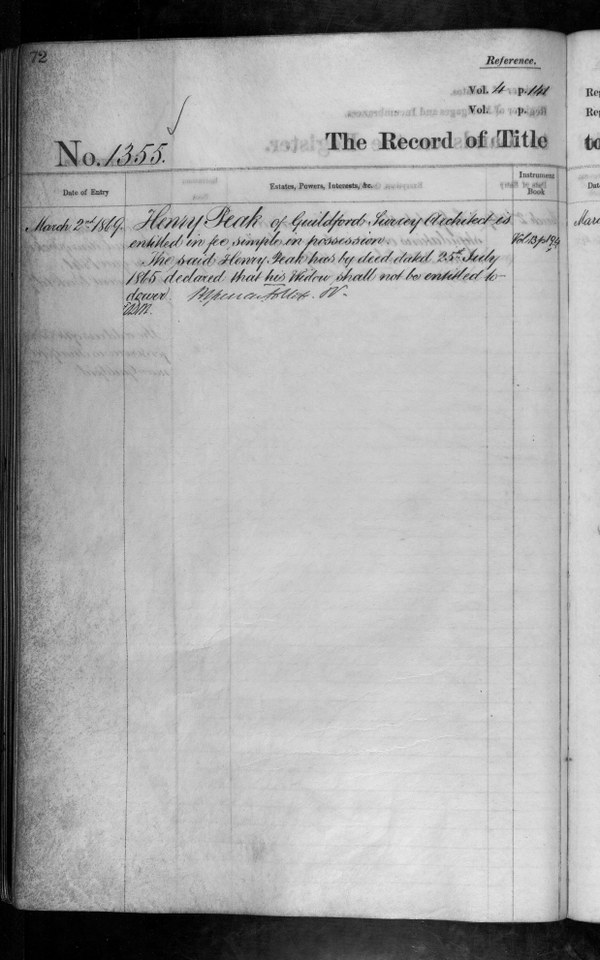 72
Reference.
Vol. 4 p. 141
Vol. p.
No. 1355.
The Record of Title
Date of Entry
Estates, Powers, Interests, &c.
Instrument Book
March 2nd 1869.
Henry Peak of Guildford Surrey Architect is
entitled in fee simple in possession.
Vol. 13 p.
The said Henry Peak has by deed dated 25th July
1865 declared that his Widow shall not be entitled to
dower.
Reg
Reg
to
Dat
Marc